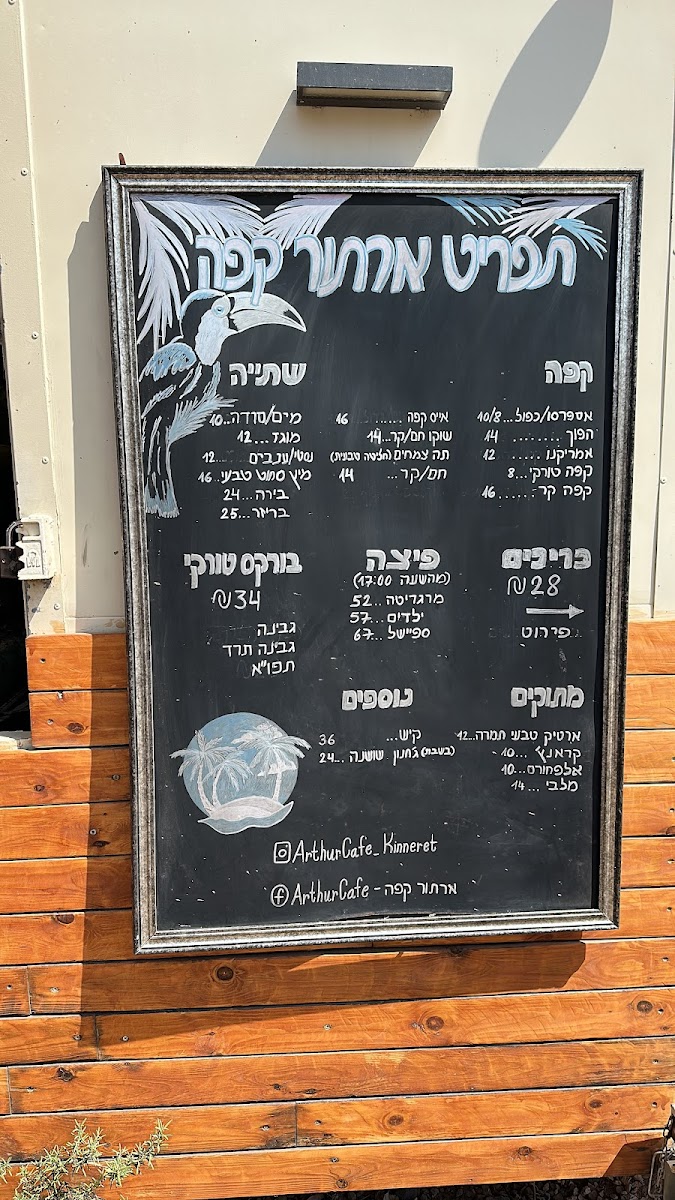 תפריט ארתור קפה
קפה
אספרסו/כפול...10/8
הפוך ........ 14
אמריקנו ..... 12
קפה טורקי...8
קפה קר...... 16
אייס קפה ....... 16
שוקו חם/קר...14
תה צמחים (חליטה טבעית)
חם/קר... 14
שתייה
מים/סודה...10
מוגז ...12
נסטי/ענבים ... 12
מיץ סחוט טבעי..16
בירה...24
בריזר...25
כריכים
28₪
פירוט
פיצה
(מהשעה 17:00)
מרגריטה...52
ילדים ...57
ספיישל ..67
בורקס טורקי
34₪
גבינה
גבינה תרד
תפו"א
מתוקים
ארטיק טבעי תמרה...12
קראנץ ... 10
אלפחורס...10
מלבי ... 14
נוספים
קיש... 36
(בשבת) ג'חנון שושנה ...24
ArthurCafe_Kinneret
ArthurCafe - ארתור קפה